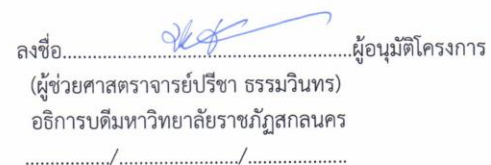 ลงชื่อ..............................................................ผู้อนุมัติโครงการ
(ผู้ช่วยศาสตราจารย์ปรีชา ธรรมวินทร)
อธิการบดีมหาวิทยาลัยราชภัฏสกลนคร
................./......................../....................